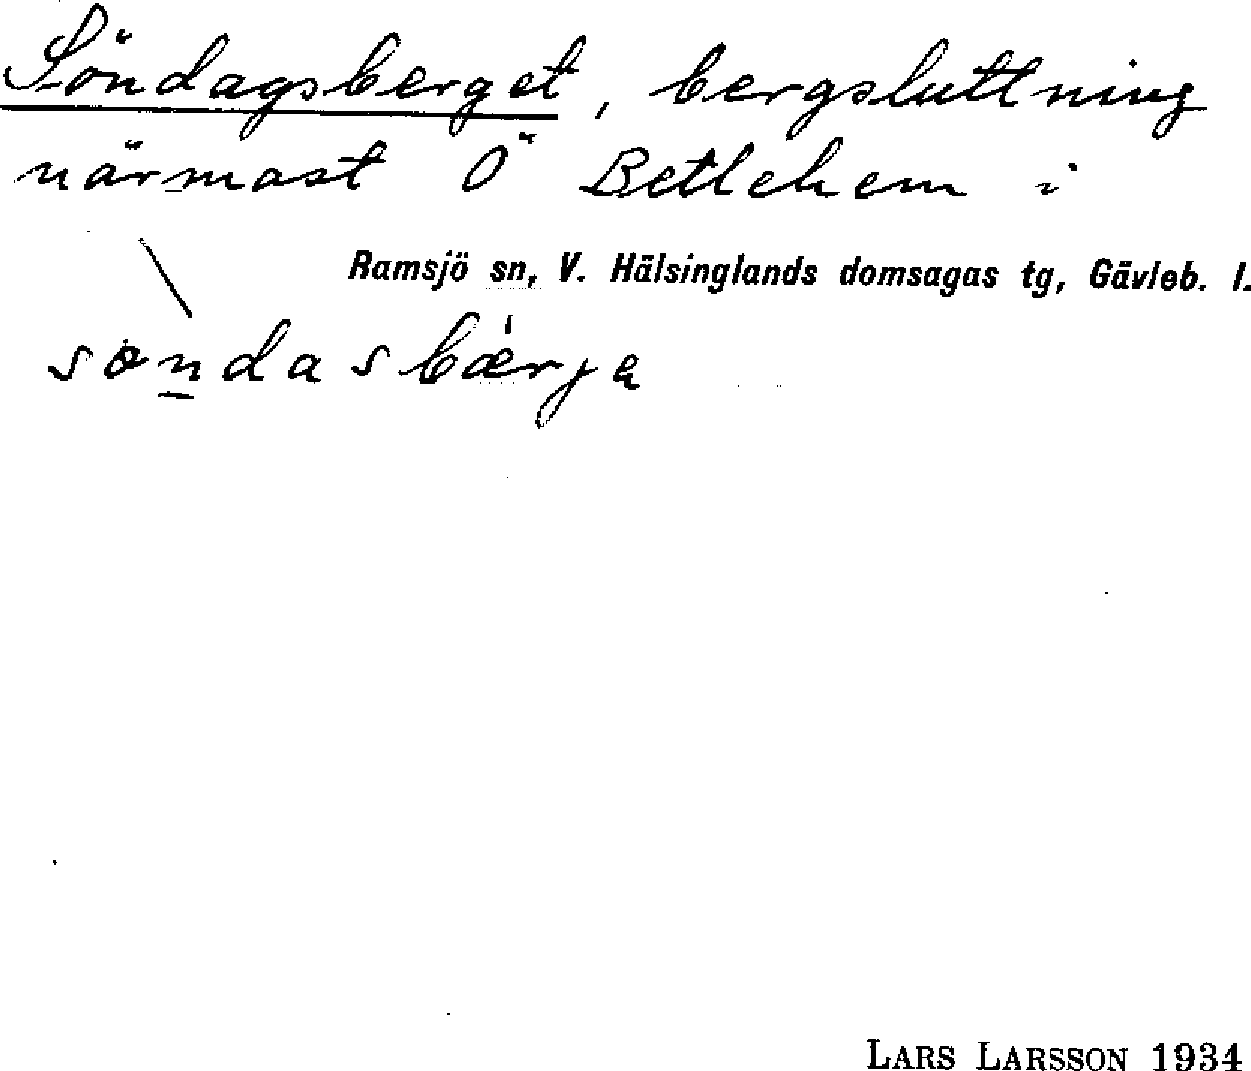 Söndagsberget, bergsluttning
närmast Ö Betlehem i
Ramsjö sn, V. Hälsinglands domsagas tg, Gävleb. l.
søn̲dasbæ̀rja
LARS LARSSON 1934